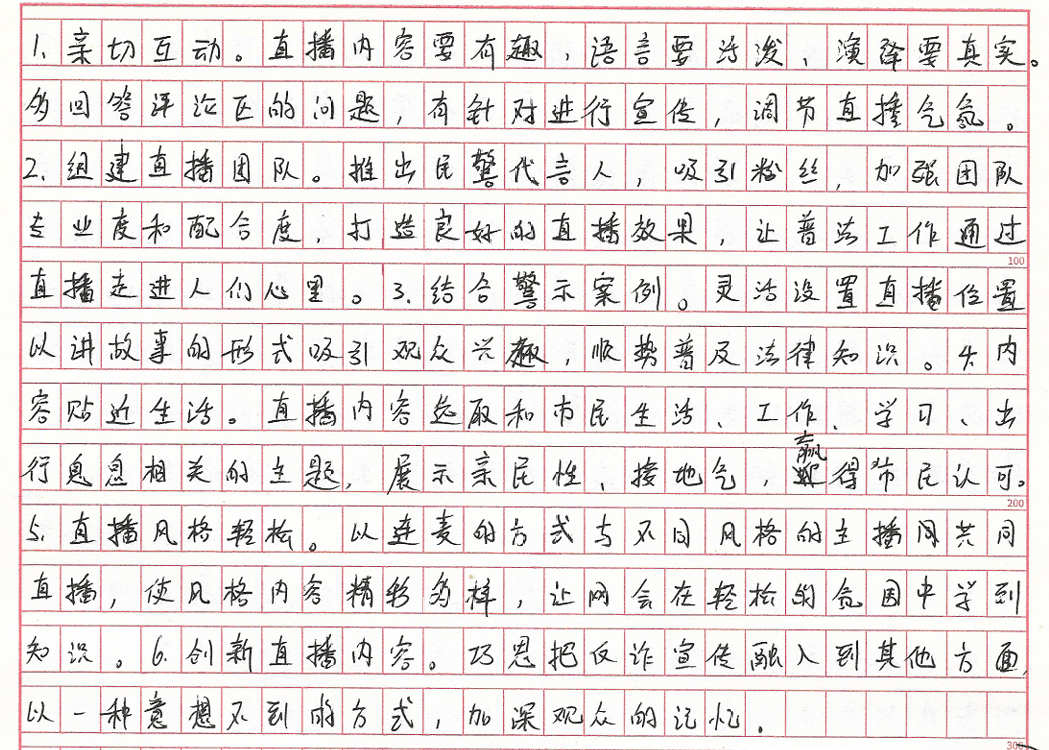 1.亲切互动。直播内容要有趣,语言要诙谐、演绎要真实。
多回答评论区的问题,有针对进行宣传,调节直播气氛。
2.组建直播团队。推出民警代言人,吸引粉丝,加强团队
专业度和配合度,打造良好的直播效果,让普法工作通过
100
直播走进人们心里。3.结合警示案例。灵活设置直播位置
以讲故事的形式吸引观众兴趣,顺势普及法律知识。4内
容贴近生活。直播内容选取和市民生活、工作、学习、出
行息息相关的主题,展示亲民性、接地气,赢得市民认可。
200
5.直播风格轻松。以连麦的方式与不同风格的主播网共同
直播,使风格内容精彩多样,让网会在轻松的氛围中学到
知识。6.创新直播内容。巧思把反诈宣传融入到其他方面,
以一种意想不到的方式,加深观众的记忆.
300